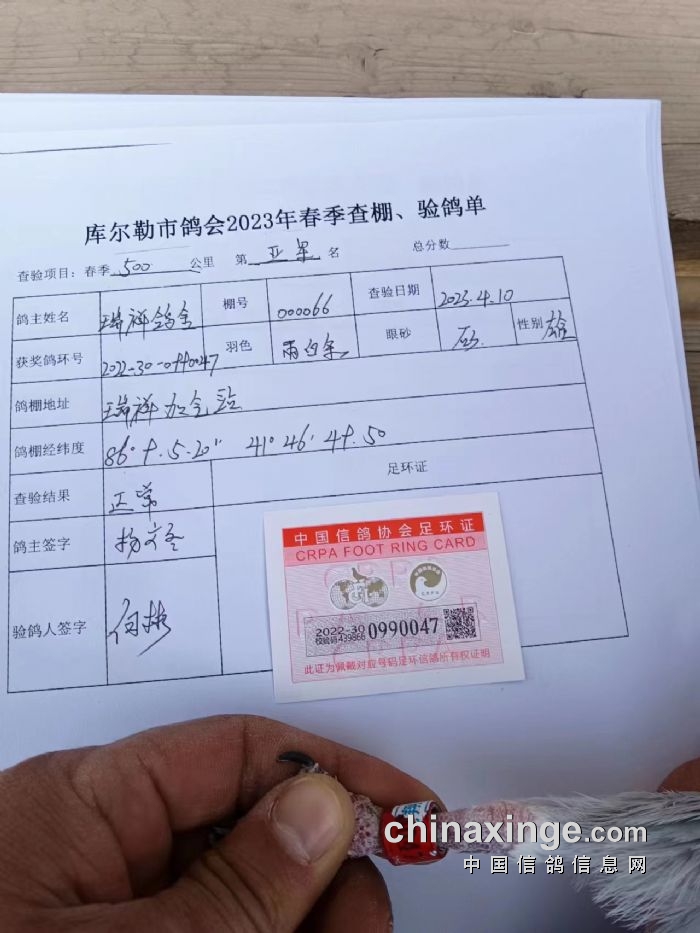 库尔勒市鸽会2023年春季查棚、验鸽单
查验项目：春季 500 公里 第 亚军 名 总分数
鸽主姓名 瑞祥鸽舍 棚号 000066 查验日期 2023.4.10
获奖鸽环号 2022-30-0990047 羽色 雨白条 眼砂 砂 性别 雄
鸽棚地址 瑞祥加气站
鸽棚经纬度 86°9.5.20" 41°46.49.50
足环证
查验结果 正常
鸽主签字
验鸽人签字
中国信鸽协会足环证
CRPA FOOT RING CARD
2022-30 0990047
校验码439866
此证为佩戴对应号码足环信鸽所有权证明
chinaxinge.com
中国信鸽信息网